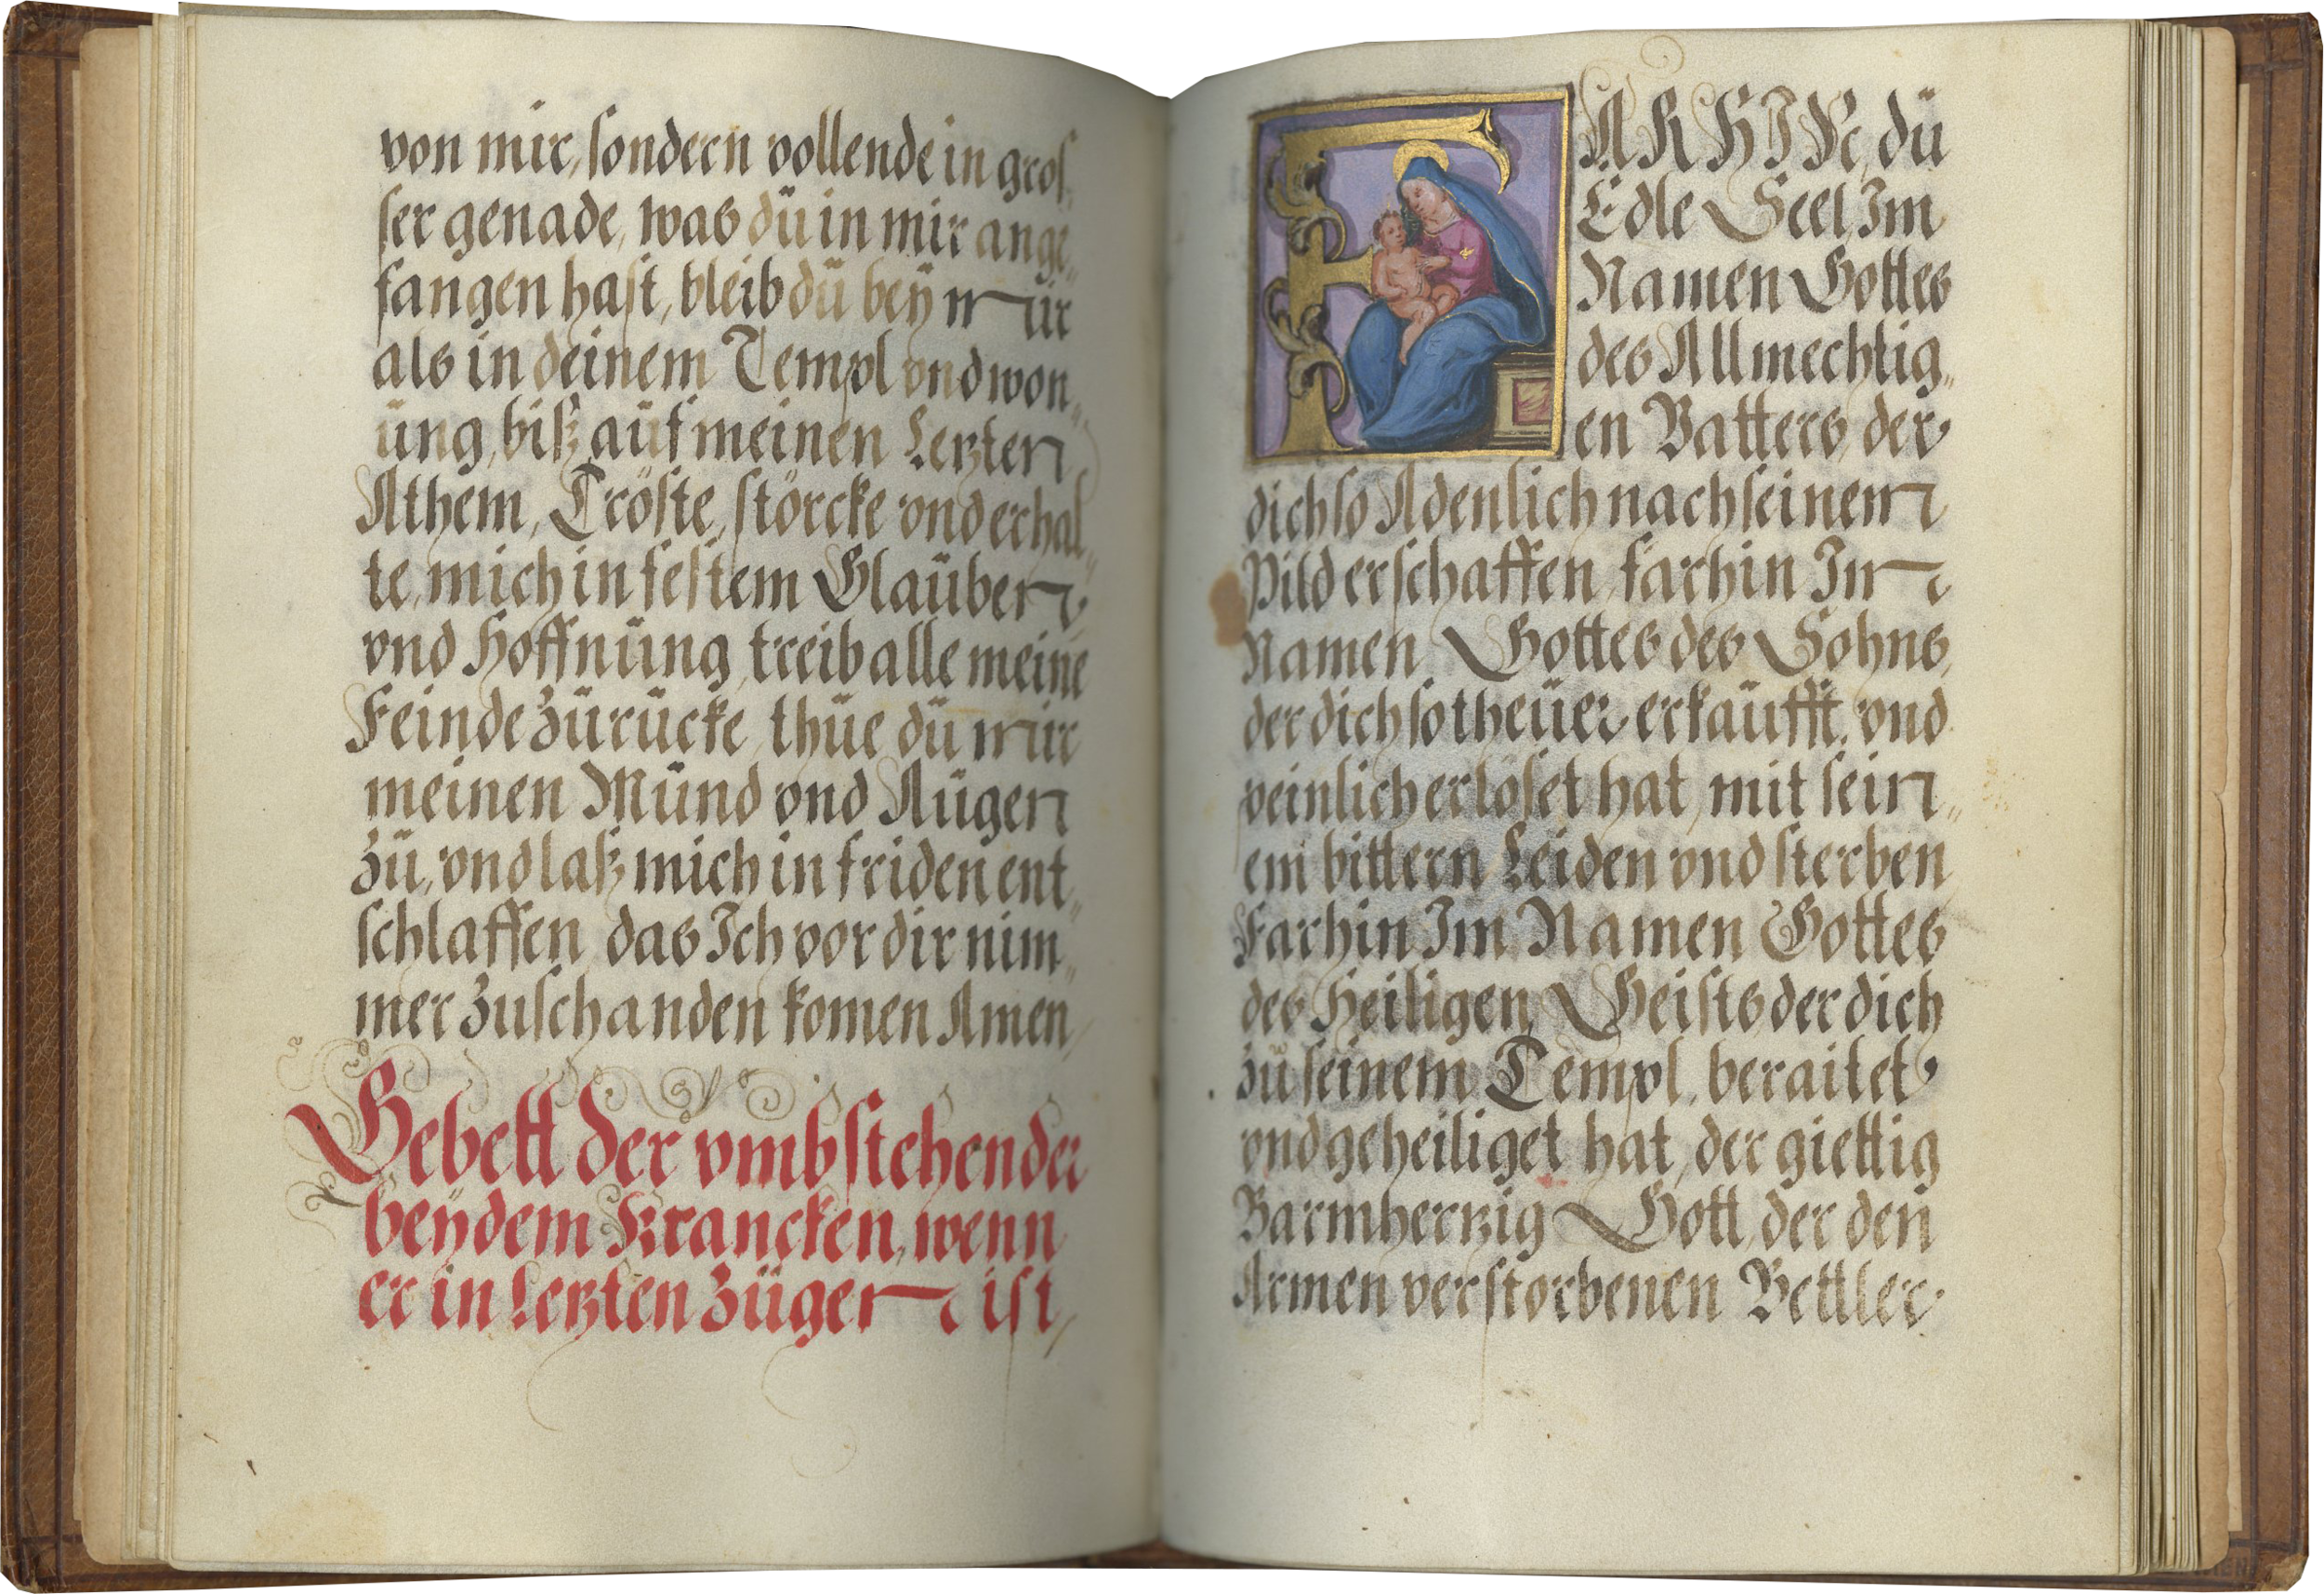 von mir, sondern vollende in gros„
ser genade, was dü in mir ange„
fangen hast, bleib dü beÿ mir
als in deinem Templ vnd won„
üng, biß aüf meinen Letzten
Athem, Tröste, störcke vnd erhal„
te, mich in festem Glaüben
vnd Hoffnüng, treib alle meine
Feinde zürücke, thüe dü mir
meinen Münd vnd Aügen
zü, vnd laß mich in friden ent„
schlaffen das Ich vor dir nim„
mer zuschanden komen Amen
Gebett der vmbstehenden
beÿ dem Krancken, wenn
er in Letzten zügen ist,
FARHIN, dü
Edle Seel, Im
Namen Gottes
des Allmechtig„
en Vatters, der
dich so Adenlich nach seinem
Pild erschaffen, farhin Im
Namen Gottes des Sohns,
der dich so theüer erkaüfft, vnd
peinlich erlöset hat, mit sein„
em bittern Leiden vnd sterben
Farhin Im Namen Gottes
des Heiligen Geists der dich
zü seinem Templ, beraitet
vnd geheiliget hat, der giettig
Barmhertzig Gott, der den
Armen verstorbenen Bettler